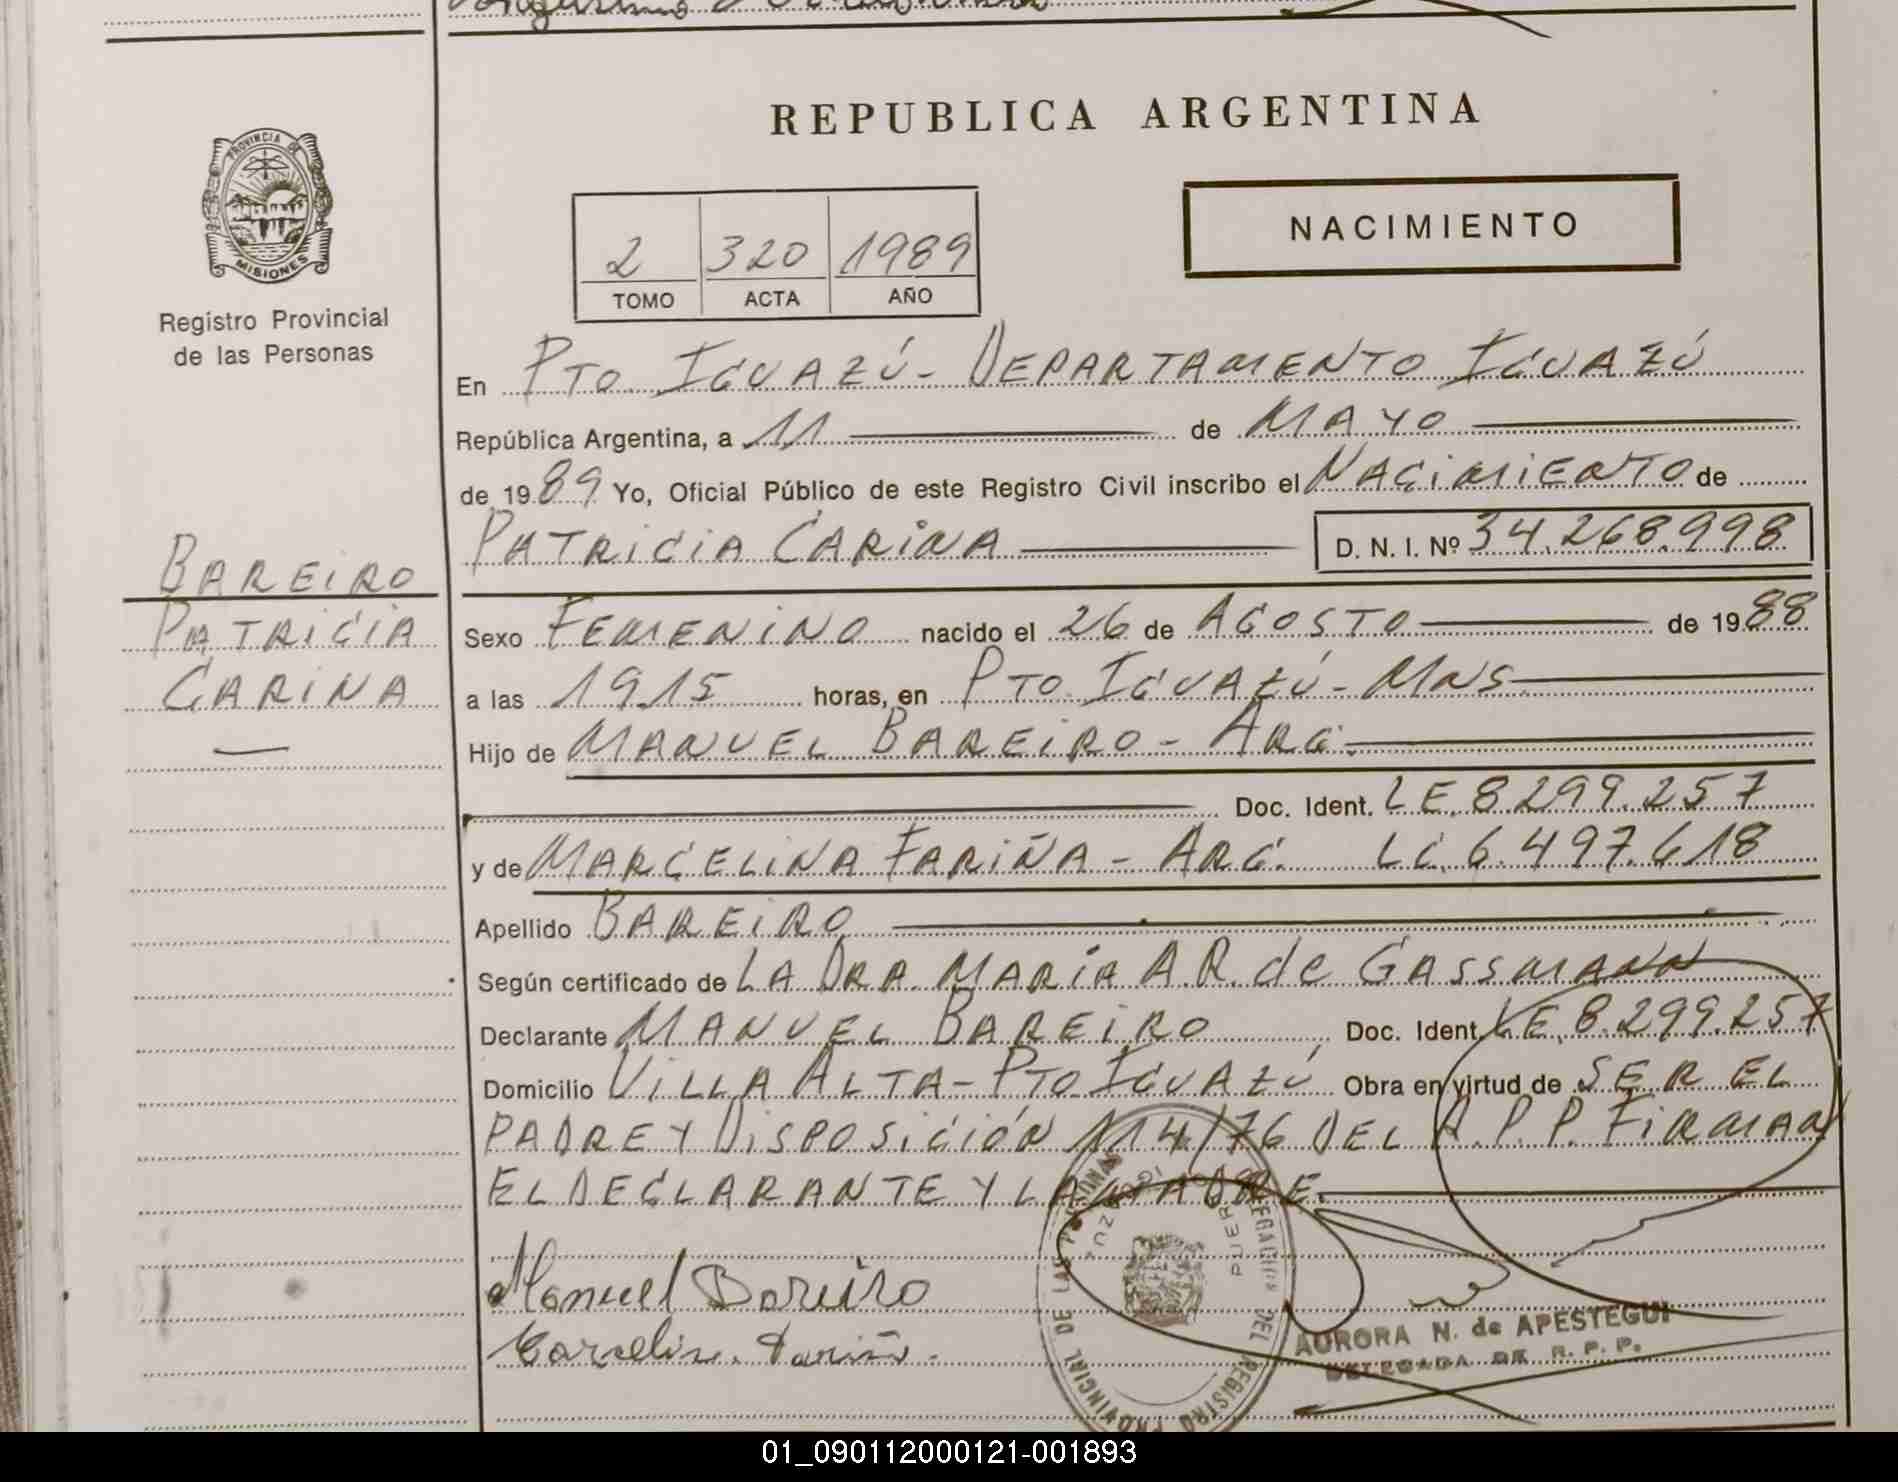 REPUBLICA ARGENTINA
PROVINCIA DE
MISIONES
Registro Provincial
de las Personas
NACIMIENTO
2 320 1989
TOMO ACTA AÑO
En PTO. IGUAZÚ - DEPARTAMENTO IGUAZÚ
República Argentina, a 11 de MAYO
de 1989 Yo, Oficial Público de este Registro Civil inscribo el NACIMIENTO de
PATRICIA CARINA D. N. I. Nº 34.268.998
BAREIRO
PATRICIA
CARINA
Sexo FEMENINO nacido el 26 de AGOSTO de 1988
a las 19.15 horas, en PTO. IGUAZÚ - MNS
Hijo de MANUEL BAREIRO - ARG.
Doc. Ident. LE. 8.299.257
y de MARCELINA FARIÑA - ARG. LC. 6.497.618
Apellido BAREIRO
Según certificado de LA DRA. MARIA A.R. de GASSMANN
Declarante MANUEL BAREIRO, Doc. Ident. LE. 8.299.257
Domicilio VILLA ALTA - PTO. IGUAZÚ Obra en virtud de SER EL
PADRE Y DISPOSICIÓN 114/76 DEL R.P.P. FIRMAN
EL DECLARANTE Y LA MADRE.
Manuel Bareiro
Marcelina Fariña.
AURORA N. de APESTEGUI
DELEGADA DE R. P. P.
01_090112000121-001893